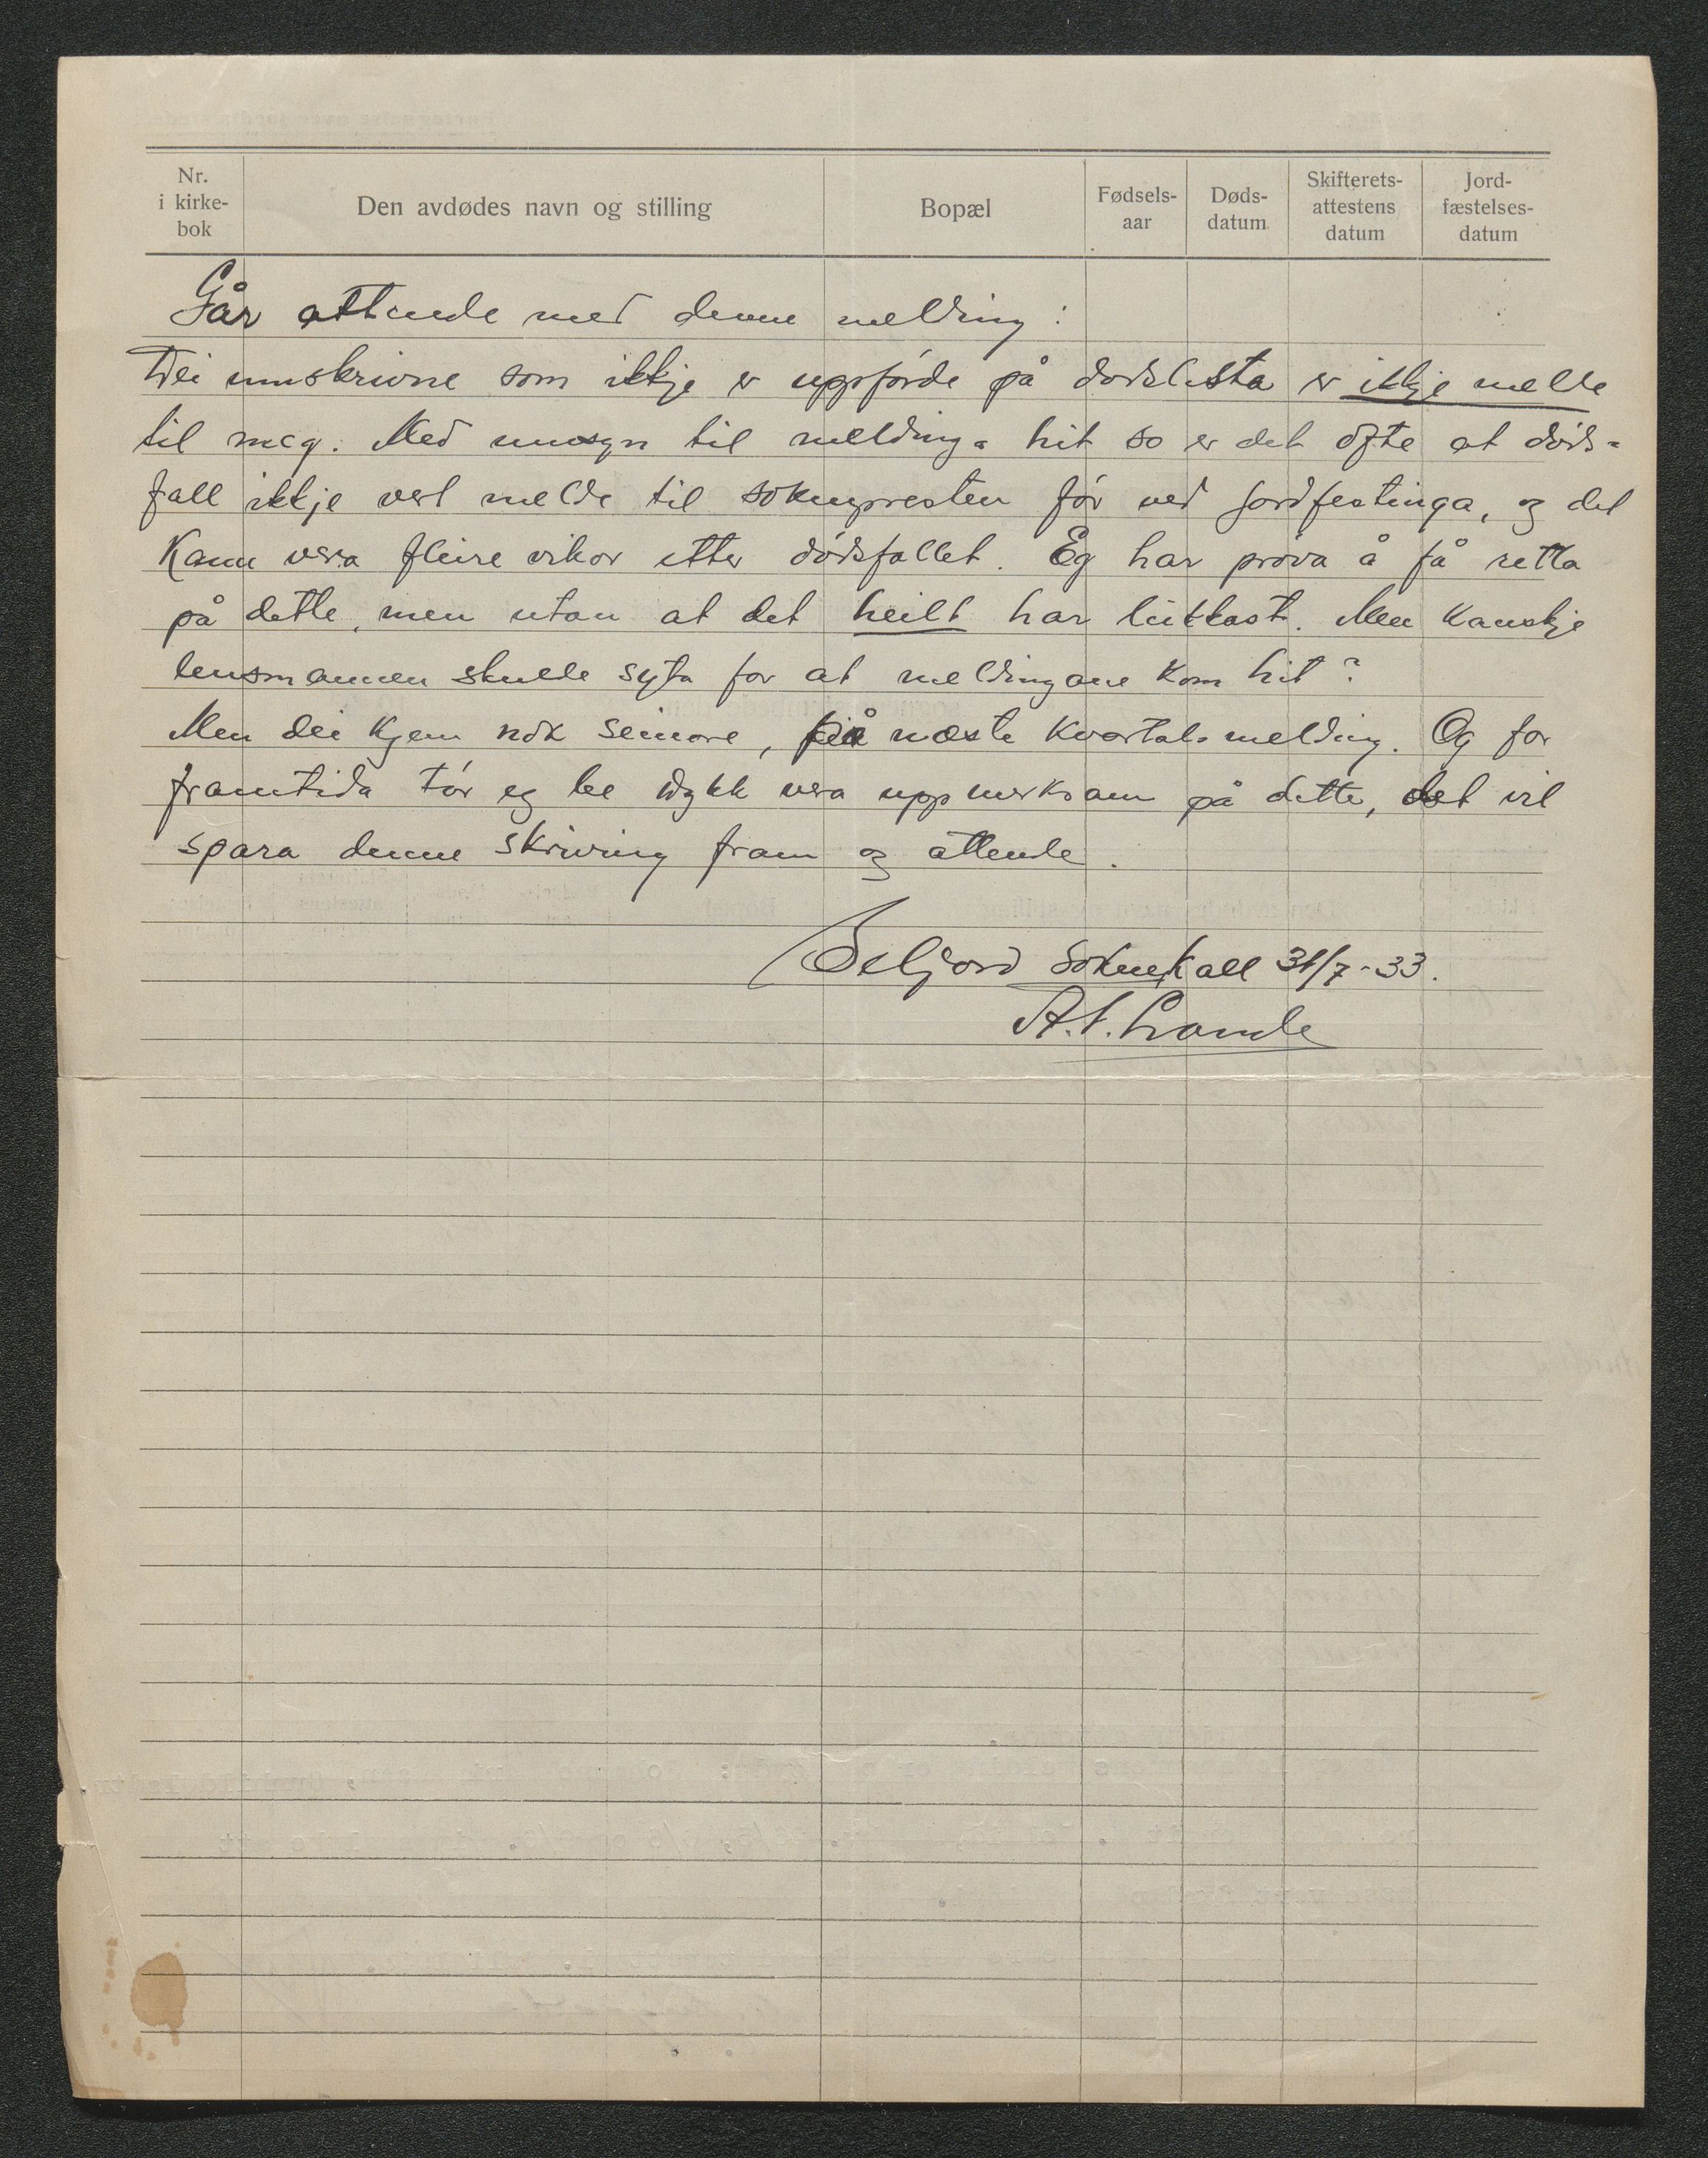 Nr.
i kirke-
bok
Den avdødes navn og stilling
Bopæl
Fødsels-
aar
Døds-
datum
Skifterets-
attestens
datum
Jord-
fæstelses-
datum
Går attende med denne melding:
Dei umskrivne som ikkje er uppførde på dødslista er ikkje melde
til meg. Med umsyn til meldinga hit so er det ofte at døds-
fall ikkje vert melde til soknepresten før ved jordfestinga, og det
kann vera fleire vikor etter dødsfallet. Eg har prøva å få retta
på dette, men utan at det heilt har lukkast. Men kanskje
lensmannen skulde syta for at meldingane kom hit?
Men dei kjem nok seinare, på næste kvartalsmelding. Og for
framtida tør eg be Dykk vera uppmerksam på dette, det vil
spara denne skriving fram og attende.
Seljord Soknekall 31/7-33.